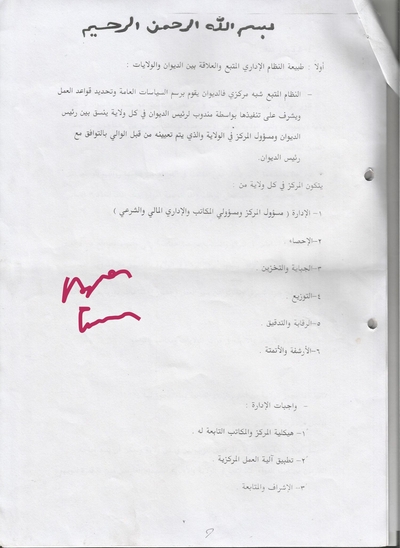 بسم الله الرحمن الرحيم
أولا : طبيعة النظام الإداري المتبع والعلاقة بين الديوان والولايات :
– النظام المتبع شبه مركزي فالديوان يقوم برسم السياسات العامة وتحديد قواعد العمل
ويشرف على تنفيذها بواسطة مندوب لرئيس الديوان في كل ولاية ينسق بين رئيس
الديوان ومسؤول المركز في الولاية والذي يتم تعيينه من قبل الوالي بالتوافق مع
رئيس الديوان.
يتكون المركز في كل ولاية من
١- الإدارة ( مسؤول المركز ومسؤولي المكاتب والإداري المالي والشرعي )
٢-الإحصاء .
٣-الجباية والتخزين
٤-التوزيع .
٥-الرقابة والتدقيق .
٦-الأرشفة والأتمتة .
– واجبات الإدارة :
١- هيكلية المركز والمكاتب التابعة له .
٢- تطبيق آلية العمل المركزية
٣- الاشراف والمتابعة